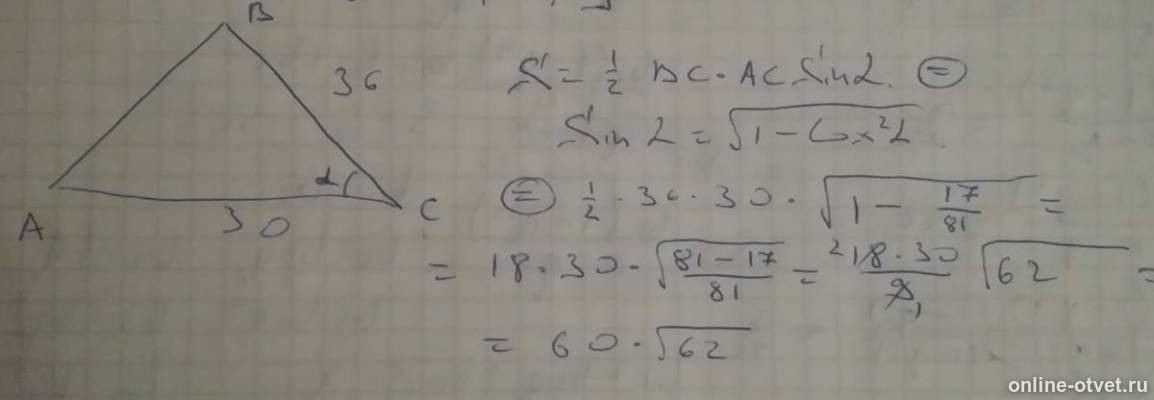 B
36
α
A
30
C
S = 1/2 BC · AC sin α =
sin α = √(1 - cos²α)
= 1/2 · 36 · 30 · √(1 - 17/81) =
= 18 · 30 · √((81 - 17)/81) = (² 18 · 30)/(9 ₁) √62 =
= 60 · √62
online-otvet.ru